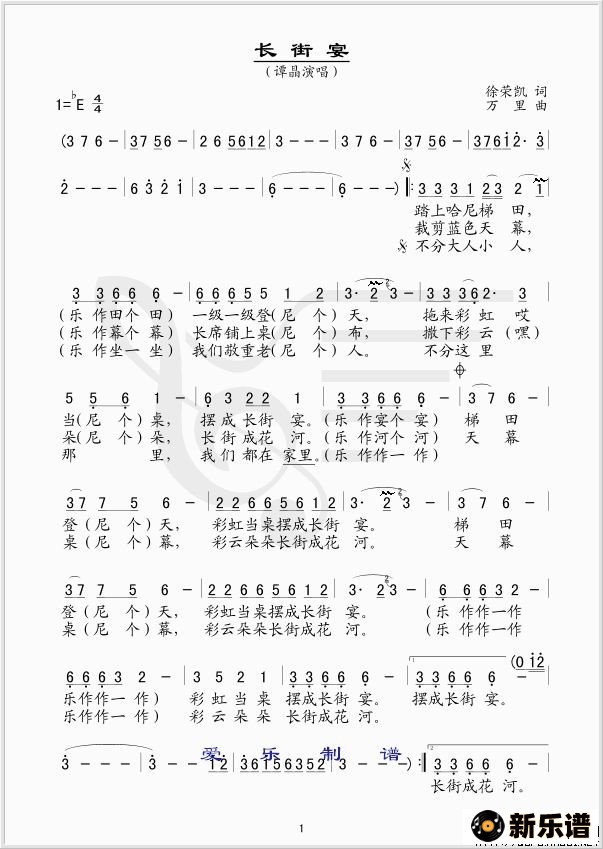 长 街 宴
（谭晶演唱）
1=♭E 4/4
徐荣凯 词
万 里 曲
(3 7 6 - | 3 7 5 6 - | 2 6 5 6 1 2 | 3 - - - | 3 7 6 - | 3 7 5 6 - | 3 7 6 1 2· 3 |
2 - - - | 6 3 2 1 | 3 - - - | 6 - - - | 6 - - - ) ‖: 3 3 3 1 2 3 2 1 |
踏上哈尼梯 田，
裁剪蓝色天 幕，
不分大人小 人，
3 3 6 6 - | 6 6 6 5 5 1 2 | 3· 2 3 - | 3 3 3 6 2· 3 |
（乐 作田个 田） 一级一级登（尼 个）天， 拖来彩 虹 哎
（乐 作幕个 幕） 长席铺上桌（尼 个）布， 撒下彩 云（嘿）
（乐 作坐一 坐） 我们敬重老（尼 个）人。 不分这 里
5 5 6 1 - | 6 6 3 2 2 1 | 3 3 6 6 - | 3 7 6 - |
当（尼 个）桌， 摆 成长街 宴。（乐 作宴个 宴） 梯 田
朵（尼 个）朵， 长 街成花 河。（乐 作河个 河） 天 幕
那 里， 我 们 都在 家里。（乐 作作一 作）
3 7 7 5 6 - | 2 2 6 6 5 6 1 2 | 3· 2 3 - | 3 7 6 - |
登（尼 个）天， 彩虹当桌摆成长街 宴。 梯 田
桌（尼 个）幕， 彩云朵朵长街成花 河。 天 幕
3 7 7 5 6 - | 2 2 6 6 5 6 1 2 | 3· 2 3 - | 6 6 6 3 2 - |
登（尼 个）天， 彩虹当桌摆成长街 宴。 （乐 作作一作
桌（尼 个）幕， 彩云朵朵长街成花 河。 （乐 作作一作
(0 1 2
6 6 6 3 2 - | 3 5 2 1 | 3 3 6 6 6 - | 1. 3 3 6 6 6 - |
乐作作一 作） 彩 虹 当 桌 摆成长街 宴。 摆成长街 宴。
乐作作一 作） 彩 云 朵 朵 长街成花 河。
爱 乐 制 谱
3 - - - | 3 - - 1 2 | 3 6 1 5 6 3 5 2 | 3 - - - ) :‖ 2. 3 3 6 6 6 - |
长街成花 河。
1
新乐谱